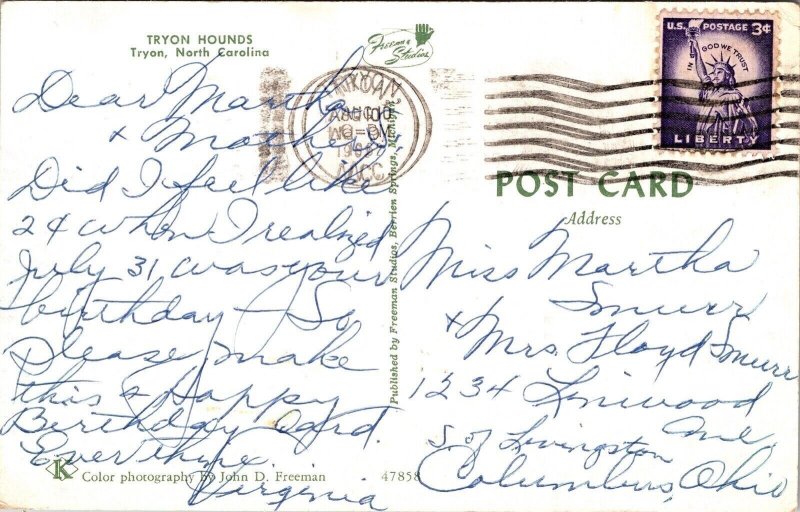 TRYON HOUNDS
Tryon, North Carolina
Freeman
Studios
TRYON
AUG 10
N.C.
U.S. POSTAGE 3¢
IN GOD WE TRUST
LIBERTY
Dear Martha
& Mother,
Did I feel like
2¢ when I realized
July 31 was your
birthday - So
please make
this a Happy
Birthday Card.
Everthine
Virginia
Published by Freeman Studios, Berrien Springs, Michigan
POST CARD
Address
Miss Martha
Smurr
& Mrs. Floyd Smurr
1234 Linwood
Ave.
S. of Livingston
Columbus, Ohio
K
Color photography by John D. Freeman
47858